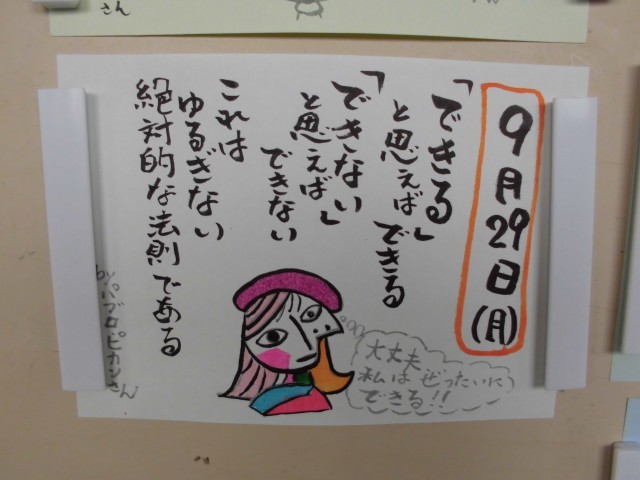 さん
9月29日(月)
「できる」
と思えばできる
「できない」
と思えば
できない
これは
ゆるぎない
絶対的な法則である
by パブロ・ピカソさん
大丈夫
私はぜったいに
できる!!